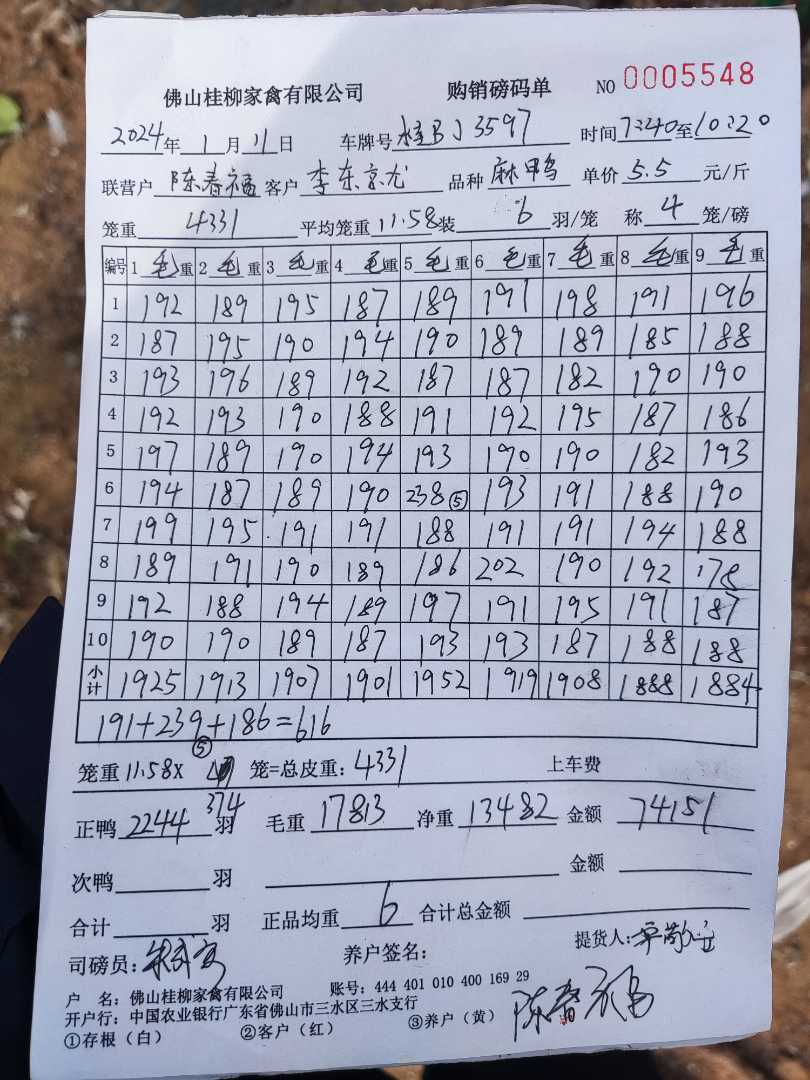 佛山桂柳家禽有限公司 购销磅码单 NO 0005548
2024年 1月 11日 车牌号 桂BJ3597 时间 7:40至10:20
联营户 陈春福 客户 李东京龙 品种 麻鸭 单价 5.5 元/斤
笼重 4331 平均笼重 11.58 装 6 羽/笼 称 4 笼/磅
编号 1毛重 2毛重 3毛重 4毛重 5毛重 6毛重 7毛重 8毛重 9毛重
1 192 189 195 187 189 191 198 191 196
2 187 195 190 194 190 189 189 185 188
3 193 196 189 192 187 187 182 190 190
4 192 193 190 188 191 192 195 187 186
5 197 189 190 194 193 190 190 182 193
6 194 187 189 190 238⑤ 193 191 188 190
7 199 195 191 191 188 191 191 194 188
8 189 191 190 189 186 202 190 192 178
9 192 188 194 189 197 191 195 191 187
10 190 190 189 187 193 193 187 188 188
小计 1925 1913 1907 1901 1952 1919 1908 1888 1884
191+239+186=616
⑤
笼重 11.58X 笼=总皮重: 4331 上车费
374
正鸭 2244 羽 毛重 17813 净重 13482 金额 74151
次鸭 羽 金额
合计 羽 正品均重 6 合计总金额
司磅员: 养户签名: 提货人:
户 名: 佛山桂柳家禽有限公司 账号: 444 401 010 400 169 29
开户行: 中国农业银行广东省佛山市三水区三水支行
①存根（白） ②客户（红） ③养户（黄） 陈春福